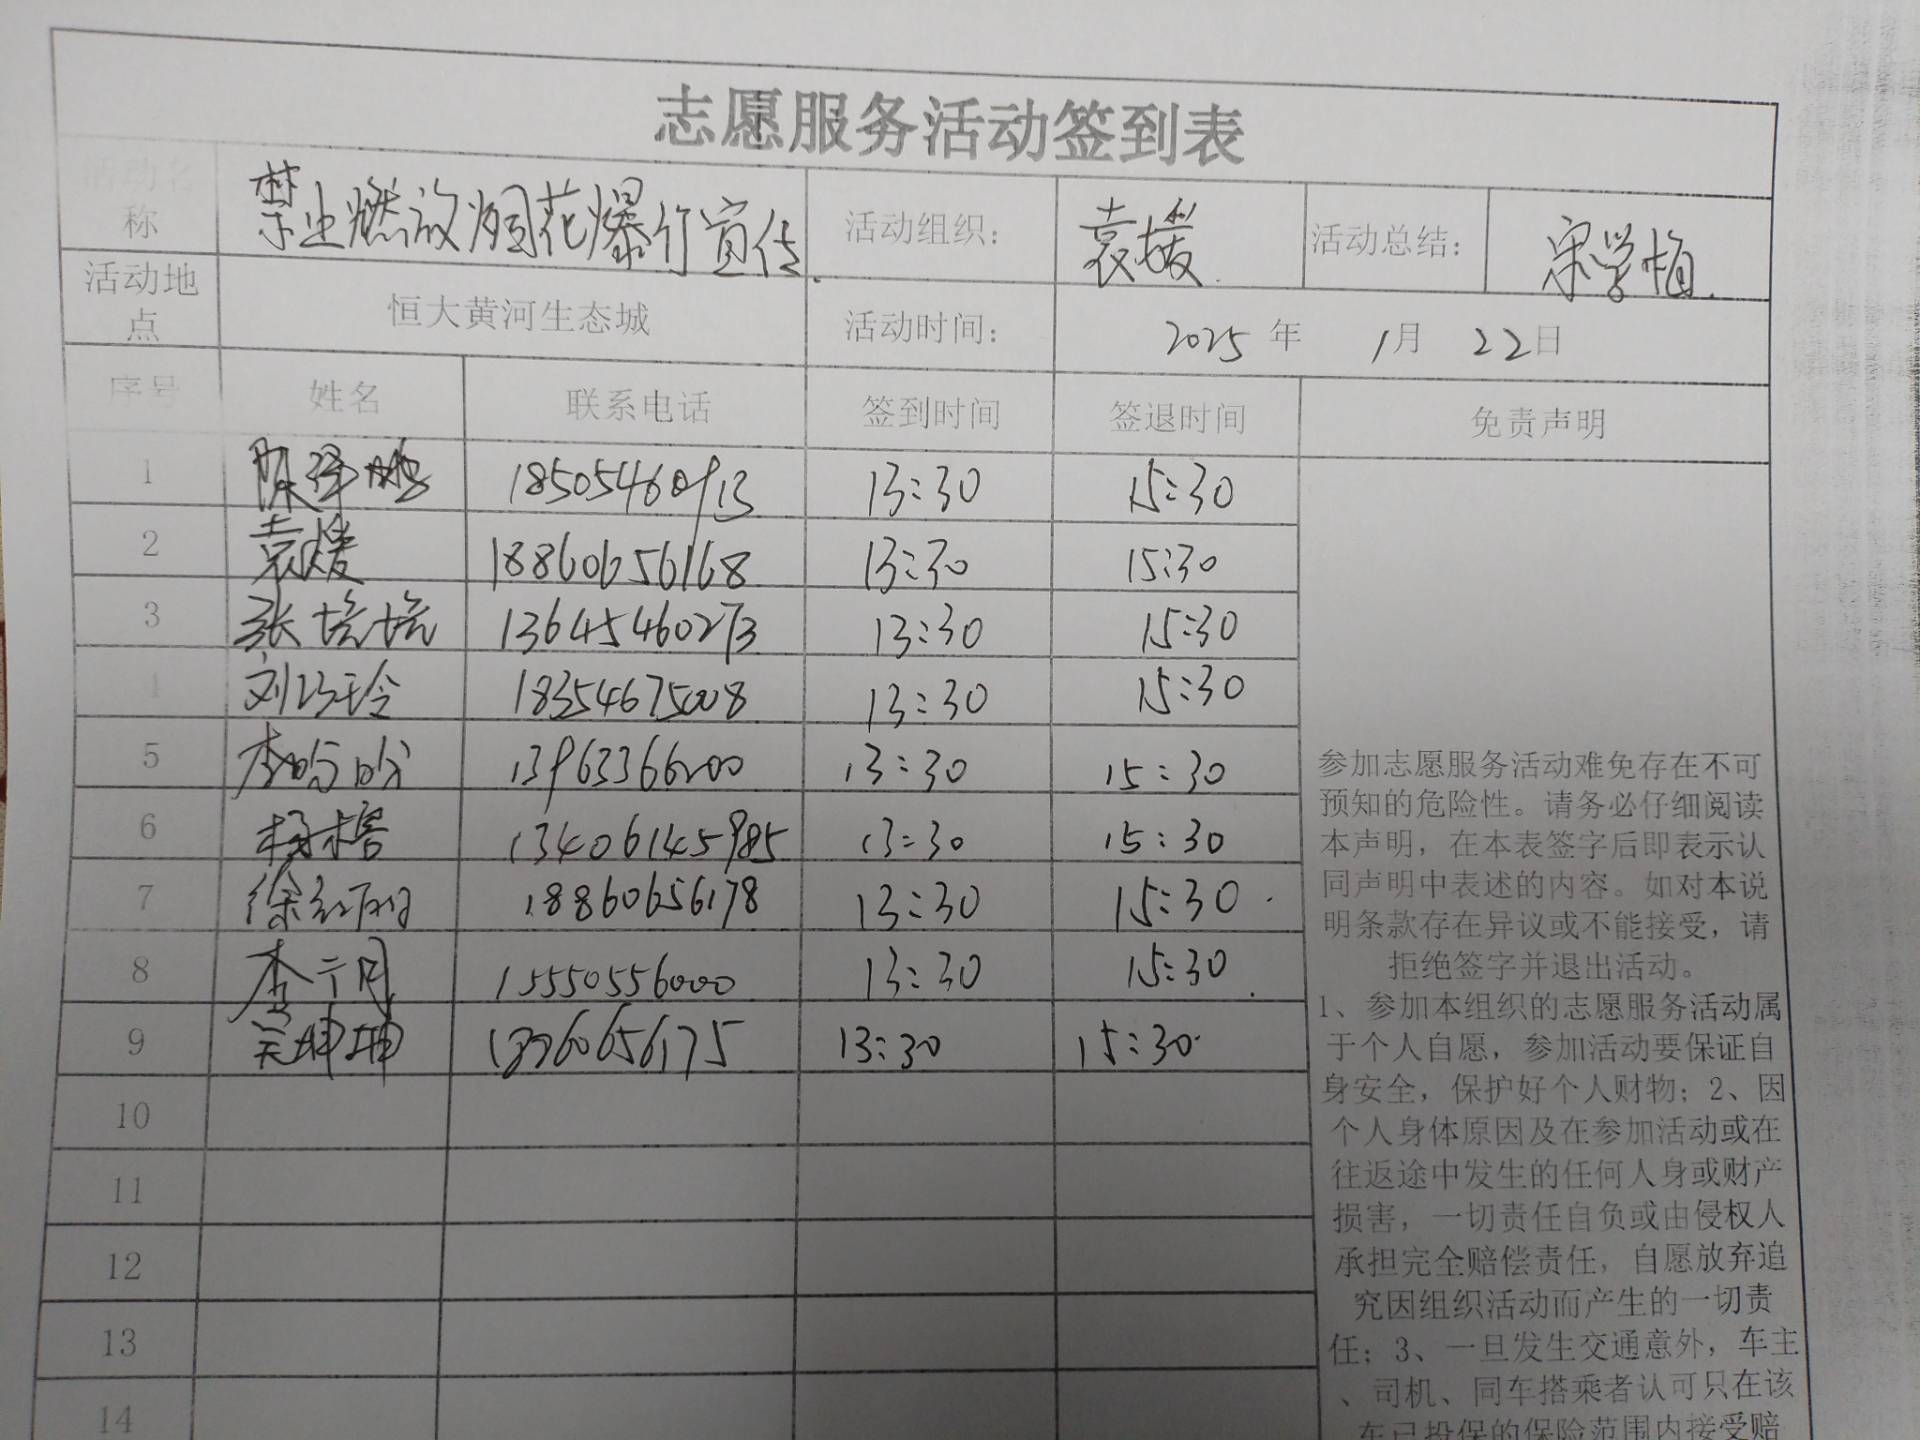 志愿服务活动签到表
活动名称 禁止燃放烟花爆竹宣传. 活动组织: 袁媛. 活动总结: 宋学梅.
活动地点 恒大黄河生态城 活动时间: 2025年 1月 22日
序号 姓名 联系电话 签到时间 签退时间 免责声明
1 陈泽鹏 18505460913 13:30 15:30
2 袁媛 18860656168 13:30 15:30
3 张培培 13645460273 13:30 15:30
4 刘巧玲 18354675008 13:30 15:30
5 李盼盼 13963366200 13:30 15:30
6 杨 13406145985 13:30 15:30
7 徐红丽 18860656178 13:30 15:30
8 李 15550556000 13:30 15:30
9 吴坤坤 15:30
13:30
10
11
12
13
14
参加志愿服务活动难免存在不可
预知的危险性。请务必仔细阅读
本声明，在本表签字后即表示认
同声明中表述的内容。如对本说
明条款存在异议或不能接受，请
拒绝签字并退出活动。
1、参加本组织的志愿服务活动属
于个人自愿，参加活动要保证自
身安全，保护好个人财物；2、因
个人身体原因及在参加活动或在
往返途中发生的任何人身或财产
损害，一切责任自负或由侵权人
承担完全赔偿责任，自愿放弃追
究因组织活动而产生的一切责
任；3、一旦发生交通意外，车主
、司机、同车搭乘者认可只在该
车已投保的保险范围内接受赔